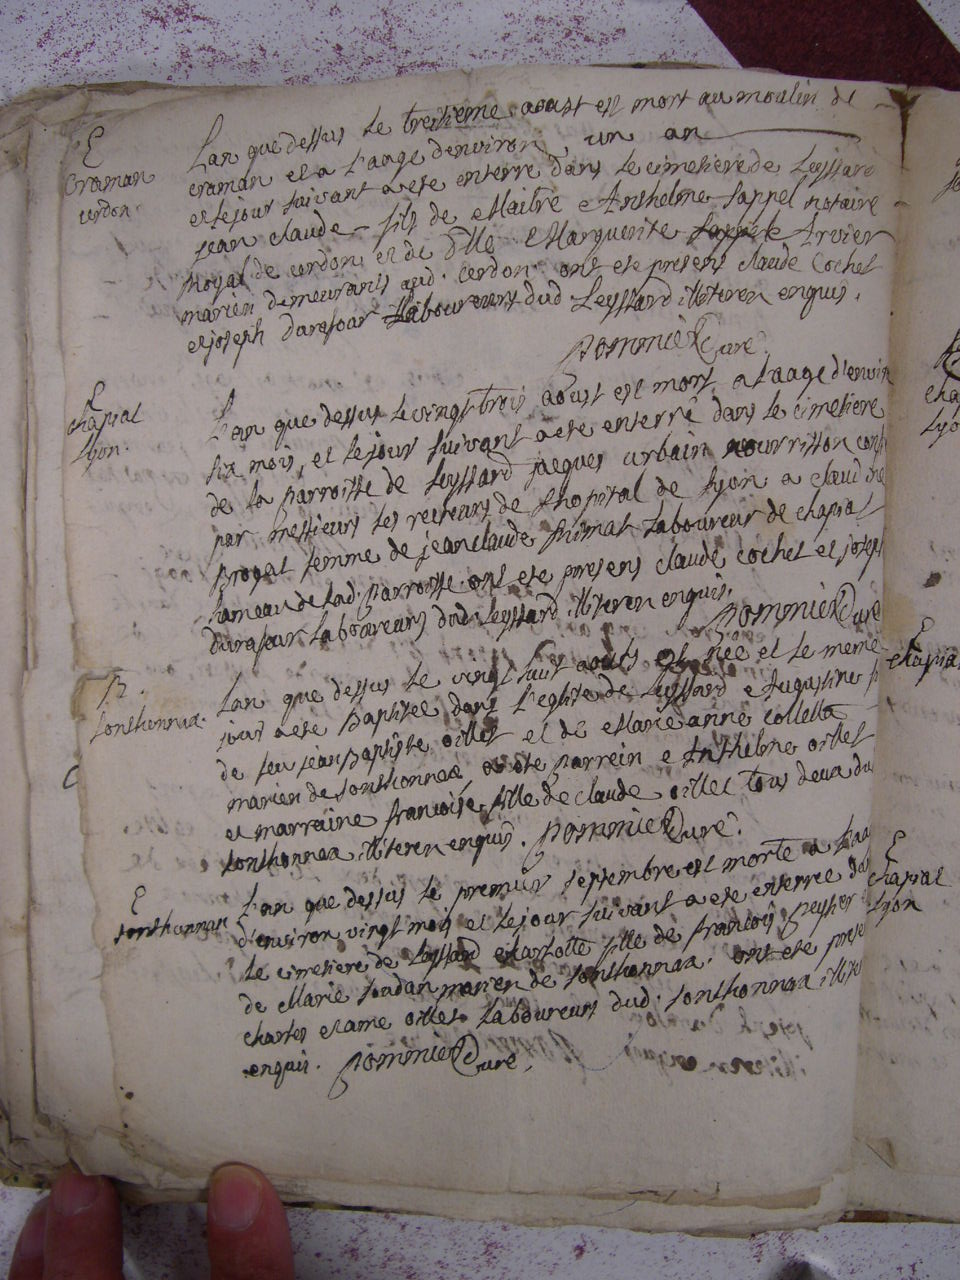 E
Craman
cerdon.
Lan que dessus le tresieme aoust est mort au moulin de
craman et a l'aage denviron un an
et le jour suivant a ete enterré dans le cimetiere de Leyssard
jean claude fils de Maitre Anthelme Sappel notaire
Royal de cerdon et de Dlle Marguerite Arvier
mariéz demeurants aud. cerdon. ont ete presens claude Cochet
et joseph Durafour Laboureurs dud Leyssard illiterez enquis.
Pommier Curé.
E
chapiat
Lyon.
L'an que dessus le vingt trois aoust est mort a l'aage d'environ
six mois, et le jour suivant a ete enterré dans le cimetiere
de la parroisse de Leyssard jacques urbain nourrisson
par messieurs les recteurs de L'hopital de Lyon a claudine
femme de jean claude Laboureur de chapiat
hameau de lad. parroisse. ont ete presens claude cochet et joseph
Durafour Laboureurs dud. Leyssard illiterez enquis.
Pommier Curé
B.
sonthonnax.
Lan que dessus le vingt huit aoust est née et le meme
jour a ete Baptisée dans l'eglise de Leyssard Augustine
de feu jean Baptiste oillet et de Marie anne colletta
mariéz de sonthonnax, a ete parrein Anthelme oillet
et marraine francoise fille de claude oillet tous deux du
sonthonnax illiterez enquis. Pommier Curé.
E
sonthonnax
L'an que dessus le premier septembre est morte a l'aa
d'environ vingt mois et le jour suivant a ete enterrée da
le cimetiere de Leyssard Charlotte fille de francois peysier
de Marie mariéz de sonthonnax. ont ete prese
charles et oillet Laboureurs dud. sonthonnax illite
enquis. Pommier Curé.
E
chapia
E
chapiat
Lyon